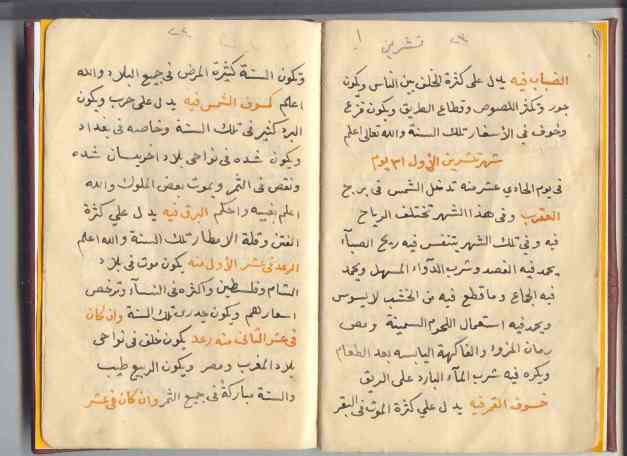 تشرين ١
الضباب فيه يدل على كثرة الخلف بين الناس ويكون
جور وتكثر اللصوص وقطاع الطريق ويكون فزع
وخوف في الأسفار تلك السنة والله تعالى اعلم
شهر تشرين الأول ٣١ يوم
في يوم الحادي عشر منه تدخل الشمس في برج
العقرب وفي هذا الشهر تختلف الرياح
فيه وفي تلك الشهر يتنفس فيه ريح الصبآ
يحمد فيه الفصد وشرب الدوآء المسهل ويحمد
فيه الجماع وما قطع فيه من الخشب لا يسوس
ويحمد فيه استعمال اللحوم السمينة ومص
رمان المز والفاكهة اليابسه بعد الطعام
ويكره فيه شرب المآء البارد على الريق
خسوف القمر فيه يدل علي كثرة الموت في البقر
وتكون السنة كثيرة المرض في جميع البلاد والله
اعلم كسوف الشمس فيه يدل على حرب ويكون
البرد كثير في تلك السنة وخاصه في بغداد
ويكون شده في نواحي بلاد اخريسان شده
ونقص في الثمر وموت بعض الملوك والله
اعلم بغيبه واحكم البرق فيه يدل علي كثرة
الفتن وقلة الامطار تلك السنة والله اعلم
الرعد في عشر الأول منه يكون موت في بلاد
الشام وفلسطين واكثره في النسآء وترخص
اسعارهم ويكون جدري تلك السنة وان كان
في عشر الثاني منه رعد يكون خلف في نواحي
بلاد المغرب ومصر ويكون الربيع طيب
والسنة مباركة في جميع الثمر وان كان في عشر